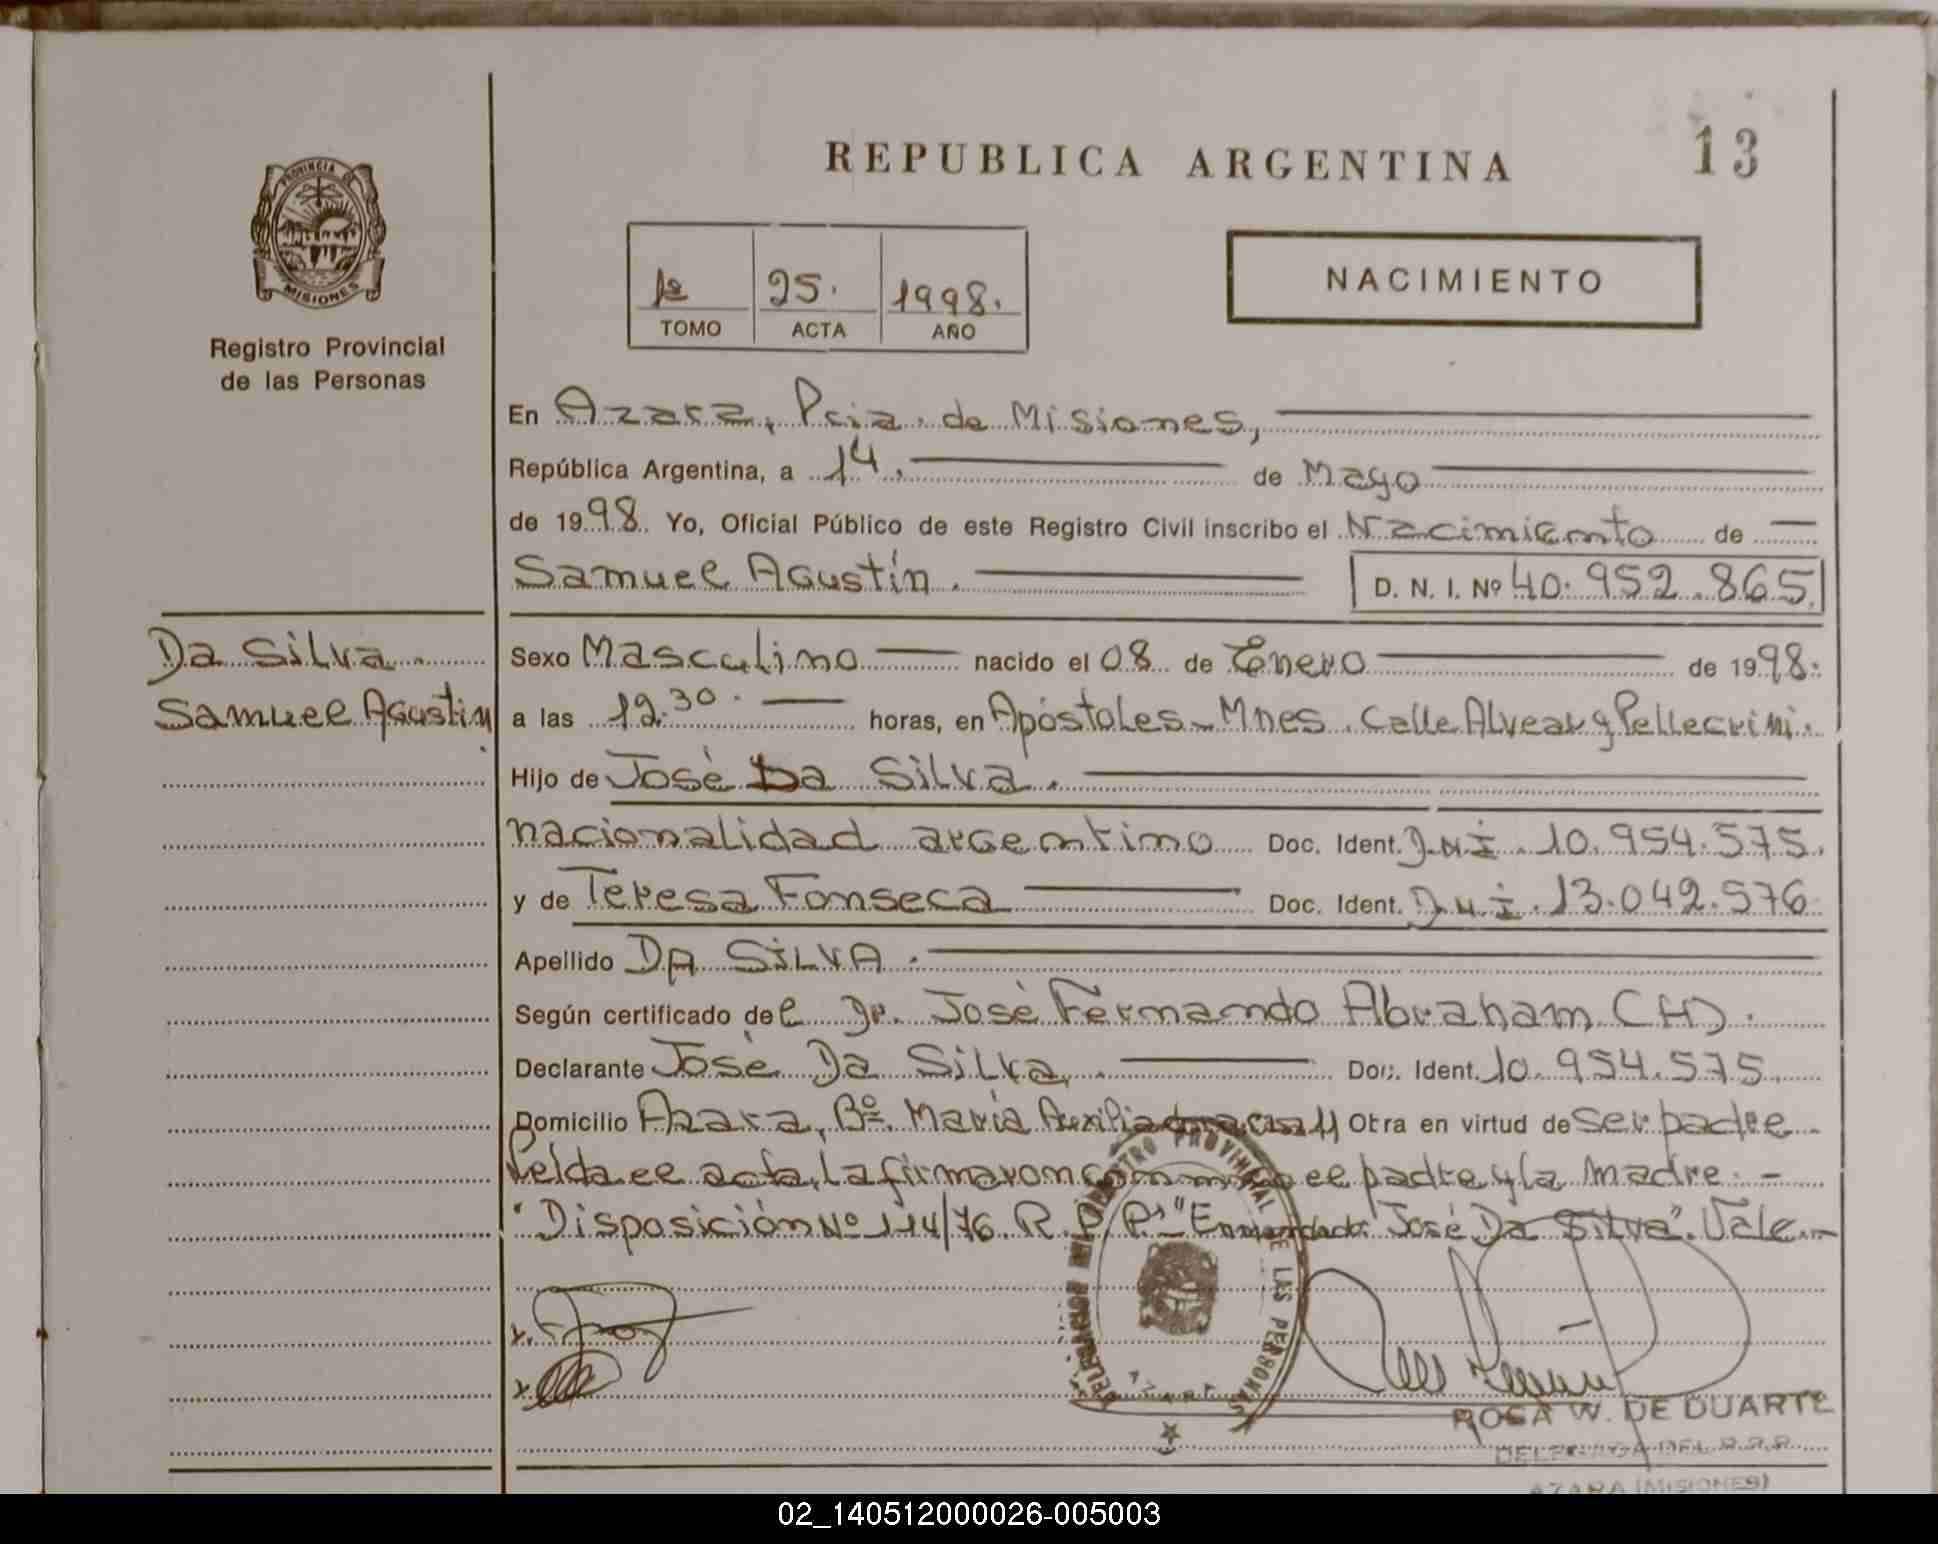 REPUBLICA ARGENTINA
13
PROVINCIA DE
MISIONES
Registro Provincial
de las Personas
1º 25. 1998.
TOMO ACTA AÑO
NACIMIENTO
En Azara, Pcia. de Misiones,
República Argentina, a 14. de Mayo
de 1998. Yo, Oficial Público de este Registro Civil inscribo el Nacimiento de
Samuel Agustín. D. N. I. Nº 40.952.865.
Da Silva.
Samuel Agustin.
Sexo Masculino nacido el 08 de Enero de 1998.
a las 12.30. horas, en Apóstoles - Mnes. Calle Alvear y Pellegrini.
Hijo de José Da Silva.
nacionalidad argentino Doc. Ident. D.N.I. 10.954.575.
y de Teresa Fonseca Doc. Ident. D.N.I. 13.042.576
Apellido DA SILVA.
Según certificado del Dr. José Fernando Abraham (H).
Declarante José Da Silva. Doc. Ident. 10.954.575.
Domicilio Azara, Bº. María Auxiliadora casa 11 Otra en virtud de ser padre.
Leida el acta, la firmaron conmigo el padre y la madre. -
"Disposición Nº 114/76. R.P.P." "Enmendado: José Da Silva". Vale.-
DELEGACION REGISTRO PROVINCIAL DE LAS PERSONAS
AZARA
ROSA W. DE DUARTE
DELEGADA DEL R.P.P.
AZARA (MISIONES)
02_140512000026-005003